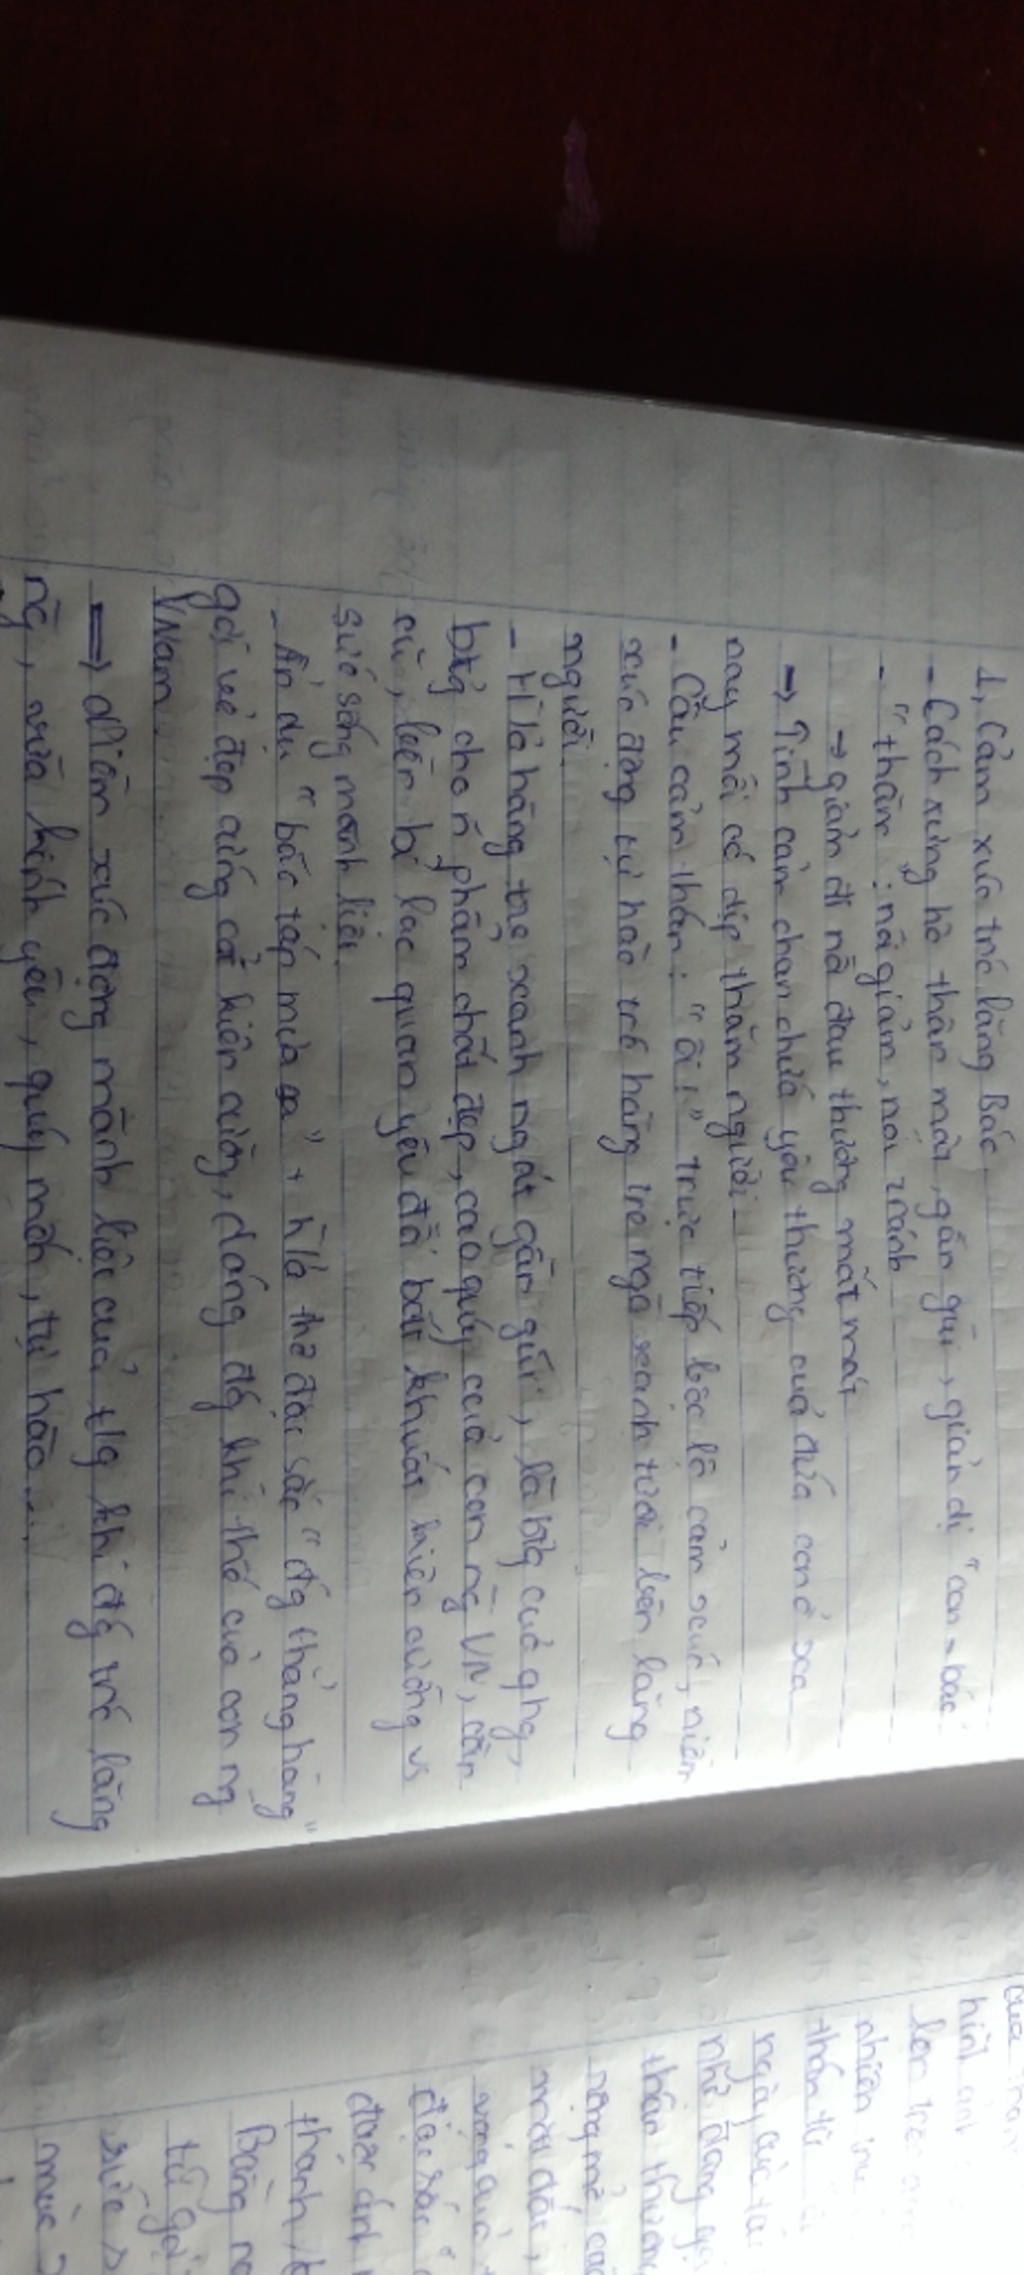 1, Cảm xúc trc lăng Bác
- Cách xưng hô thân mật, gần gũi, giản dị "con - bác
- "thăm": nói giảm, nói tránh
→ giảm đi nỗi đau thương mất mát
→ Tình cảm chan chứa yêu thương của đứa con ở xa
nay mới có dịp thăm người.
- Câu cảm thán: "ôi!" trực tiếp bộc lộ cảm xúc, niềm
xúc động tự hào trc hàng tre ngà xanh tươi bên lăng
người.
- H/ả hàng tre xanh ngát gần gũi, là btg của qhg,
btg cho n~ phẩm chất đẹp, cao quý của con ng VN, cần
cù, bền bỉ lạc quan yêu đời bất khuất kiên cường vs
sức sống mãnh liệt.
- Ẩn dụ "bão táp mưa sa" + h/ả thơ đặc sắc "đg thẳng hàng"
gợi vẻ đẹp cứng cỏi kiên cường, dáng đg khí thế của con ng
VNam.
⇒ diễn xúc động mãnh liệt của t/g khi đg trc lăng
ng, vừa kính yêu, quý mến, tự hào...
hình ảnh
nhiên
thán từ
ngày
nhỏ đang
thân thương
mặt
đặc sắc
đoạn
thanh
Bằng
từ gợi
sức s
mức